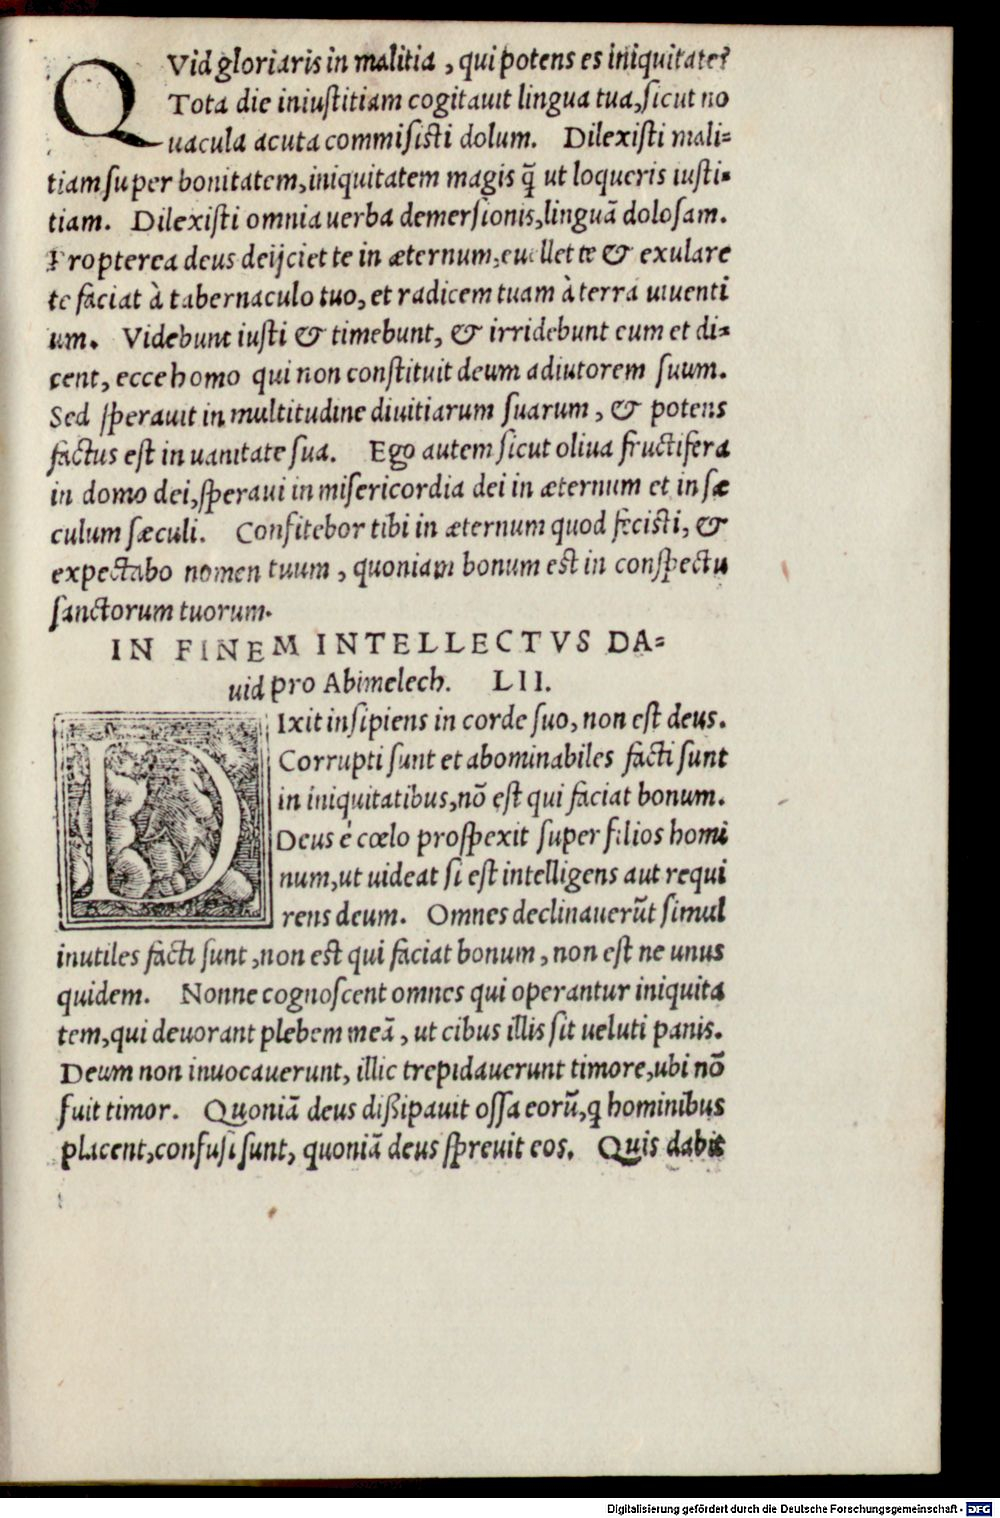 QVid gloriaris in malitia, qui potens es iniquitate?
Tota die iniustitiam cogitauit lingua tua, sicut no
uacula acuta commisisti dolum. Dilexisti mali=
tiam super bonitatem, iniquitatem magis q̃ ut loqueris iusti=
tiam. Dilexisti omnia uerba demersionis, linguã dolosam.
Propterea deus deijciet te in æternum, euellet te & exulare
te faciat à tabernaculo tuo, et radicem tuam à terra uiuenti
um. Videbunt iusti & timebunt, & irridebunt eum et di=
cent, ecce homo qui non constituit deum adiutorem suum.
Sed sperauit in multitudine diuitiarum suarum, & potens
factus est in uanitate sua. Ego autem sicut oliua fructifera
in domo dei, speraui in misericordia dei in æternum et in sæ
culum sæculi. Confitebor tibi in æternum quod fecisti, &
expectabo nomen tuum, quoniam bonum est in conspectu
sanctorum tuorum.
IN FINEM INTELLECTVS DA=
uid pro Abimelech. LII.
DIxit insipiens in corde suo, non est deus.
Corrupti sunt et abominabiles facti sunt
in iniquitatibus, nõ est qui faciat bonum.
Deus è cœlo prospexit super filios homi
num, ut uideat si est intelligens aut requi
rens deum. Omnes declinauerũt simul
inutiles facti sunt, non est qui faciat bonum, non est ne unus
quidem. Nonne cognoscent omnes qui operantur iniquita
tem, qui deuorant plebem meã, ut cibus illis sit ueluti panis.
Deum non inuocauerunt, illic trepidauerunt timore, ubi nõ
fuit timor. Quoniã deus dißipauit ossa eorũ, q hominibus
placent, confusi sunt, quoniã deus spreuit eos. Quis dabit
Digitalisierung gefördert durch die Deutsche Forschungsgemeinschaft - DFG